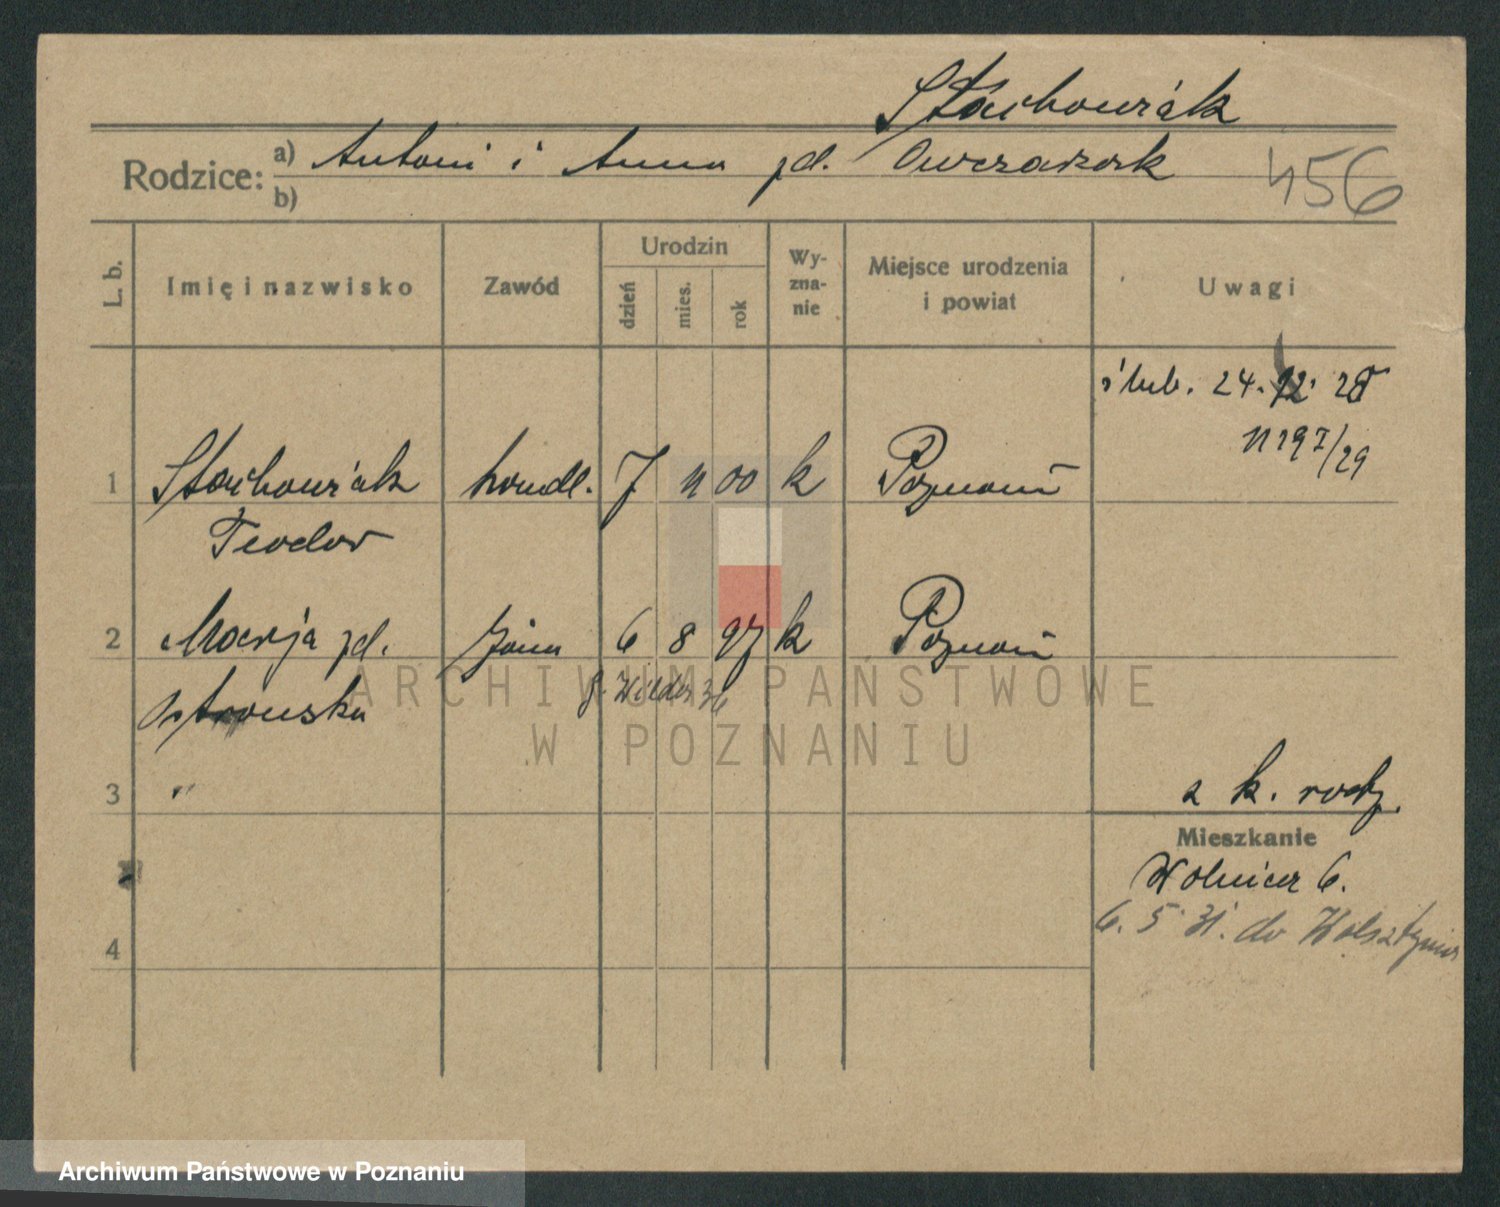 Stachowiak
Rodzice: a) Antoni i Anna zd. Owczarzak
b)
456
L. b. Imię i nazwisko Zawód Urodzin dzień mies. rok Wy-zna-nie Miejsce urodzenia i powiat Uwagi
ślub. 24. 12. 28
1197/29
1 Stachowiak handl. 7 11 00 k Poznań
Teodor
2 Marja zd. żona 6 8 97 k Poznań
Ostrowska
3
z k. rodz.
Mieszkanie
Wolnica 6.
6. 5 31. do Wolsztyna
4
ARCHIWUM PAŃSTWOWE
W POZNANIU
Archiwum Państwowe w Poznaniu